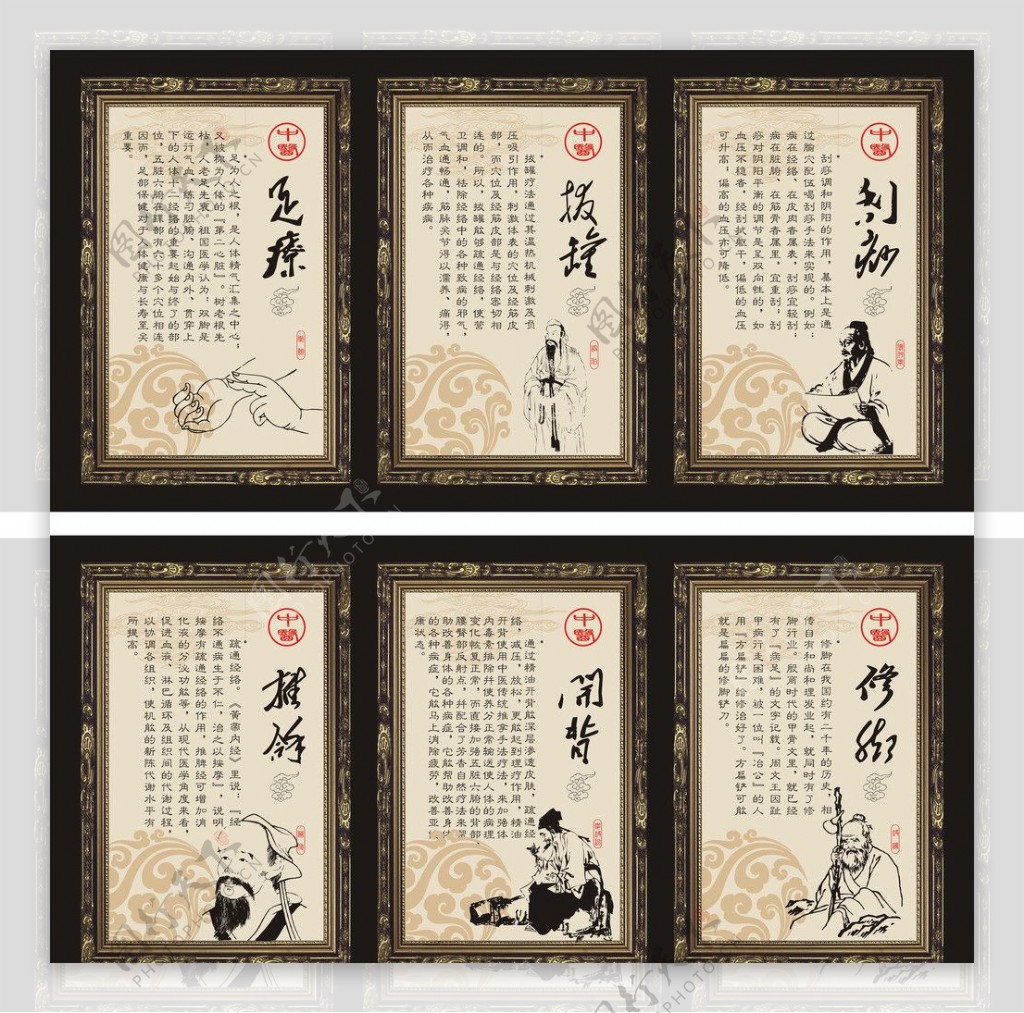 中醫
足療
足为人之根，是人体精气汇集之中心；
又被称为人体的『第二心脏』。树老根先
枯，人老足先衰。祖国医学认为：双脚是
运行气血，练习脏腑、沟通内外、贯穿上
下的人体十二经络的重要起始与终了的部
位，五脏六腑在踝部有六十多个穴位相连
因而，足部保健对于人体健康与长寿至关
重要。
中醫
拔罐
拔罐疗法通过其温热机械刺激及负
压吸引作用，刺激体表的穴位及经筋皮
部，而穴位及经筋皮部是与经络密切相
连的。所以，拔罐能够疏通经络，使营
卫调和，祛除经络中的各种致病的邪气，
气血通畅，筋脉关节得以濡养、痛得，
从而治疗各种疾病。
中醫
刮痧
刮痧调和阴阳的作用，基本上是通
过腧穴配伍喝刮痧手法来实现的。例如：
病在经络、在皮肉者属表，刮痧宜轻刮；
病在脏腑、在筋骨者属里，宜重刮；刮
痧对阴阳平衡的调节是呈双向性的，如
血压不稳者，经刮拭躯干，偏低的血压
可升高；偏高的血压亦可降低。
中醫
推拿
疏通经络。《黄帝内经》里说：『经
络不通病生于不仁，治之以按摩』，说明
按摩有疏通经络的作用，推脾经可增加消
化液的分泌功能等，从现代医学角度来看，
促进血液、淋巴循环及组织间的代谢过程，
以协调各组织，使机能的新陈代谢水平有
所提高。
中醫
開背
通过精油开背能深层渗透皮肤，疏通经
络，减压，放松，更能起到理疗作用，精油
开背使用中医传统推拿手法疗法，来加强体
内毒素排除并使养分正常输送使人体的病理
变化恢复正常，而直接加强五脏六腑的背部、
腰臀部反射点，并配合了芳香自然疗法来帮
助改善身体的各种病症，它能帮助改善身体
的各种病症，它能马上消除疲劳，改善亚健
康状态。
中醫
修脚
修脚在我国约有二千年的历史。相
传自有和尚和理发业起，就同时有了修
脚行业。殷商时代的甲骨文里，就已经
有了『病足』的文字记载。周文王因趾
甲病行走困难，被一位叫『冶公』的人
用『方扁铲』给修治好了。方扁铲可能
就是扁扁的修脚铲刀。